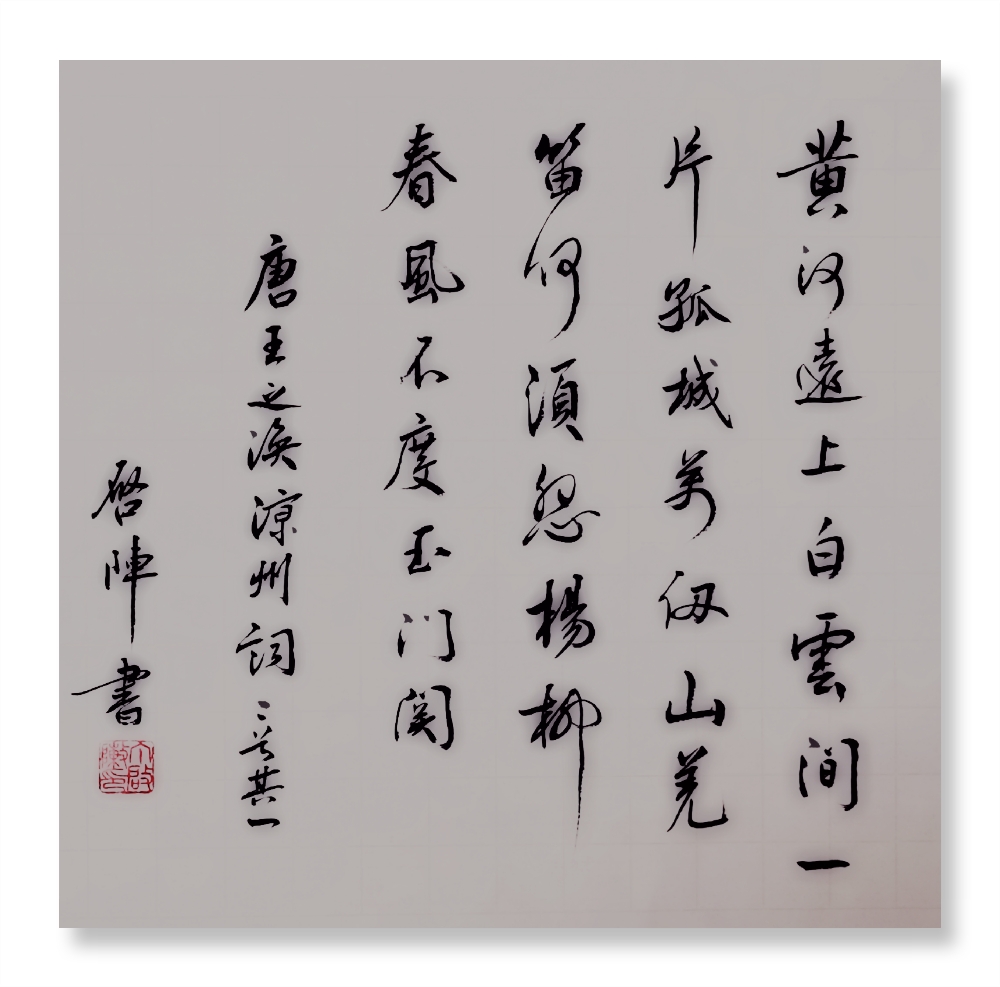 黄河遠上白雲间一
片孤城萬仞山羌
笛何須怨楊柳
春風不度玉门関
唐王之渙涼州詞二首其一
啓陣書